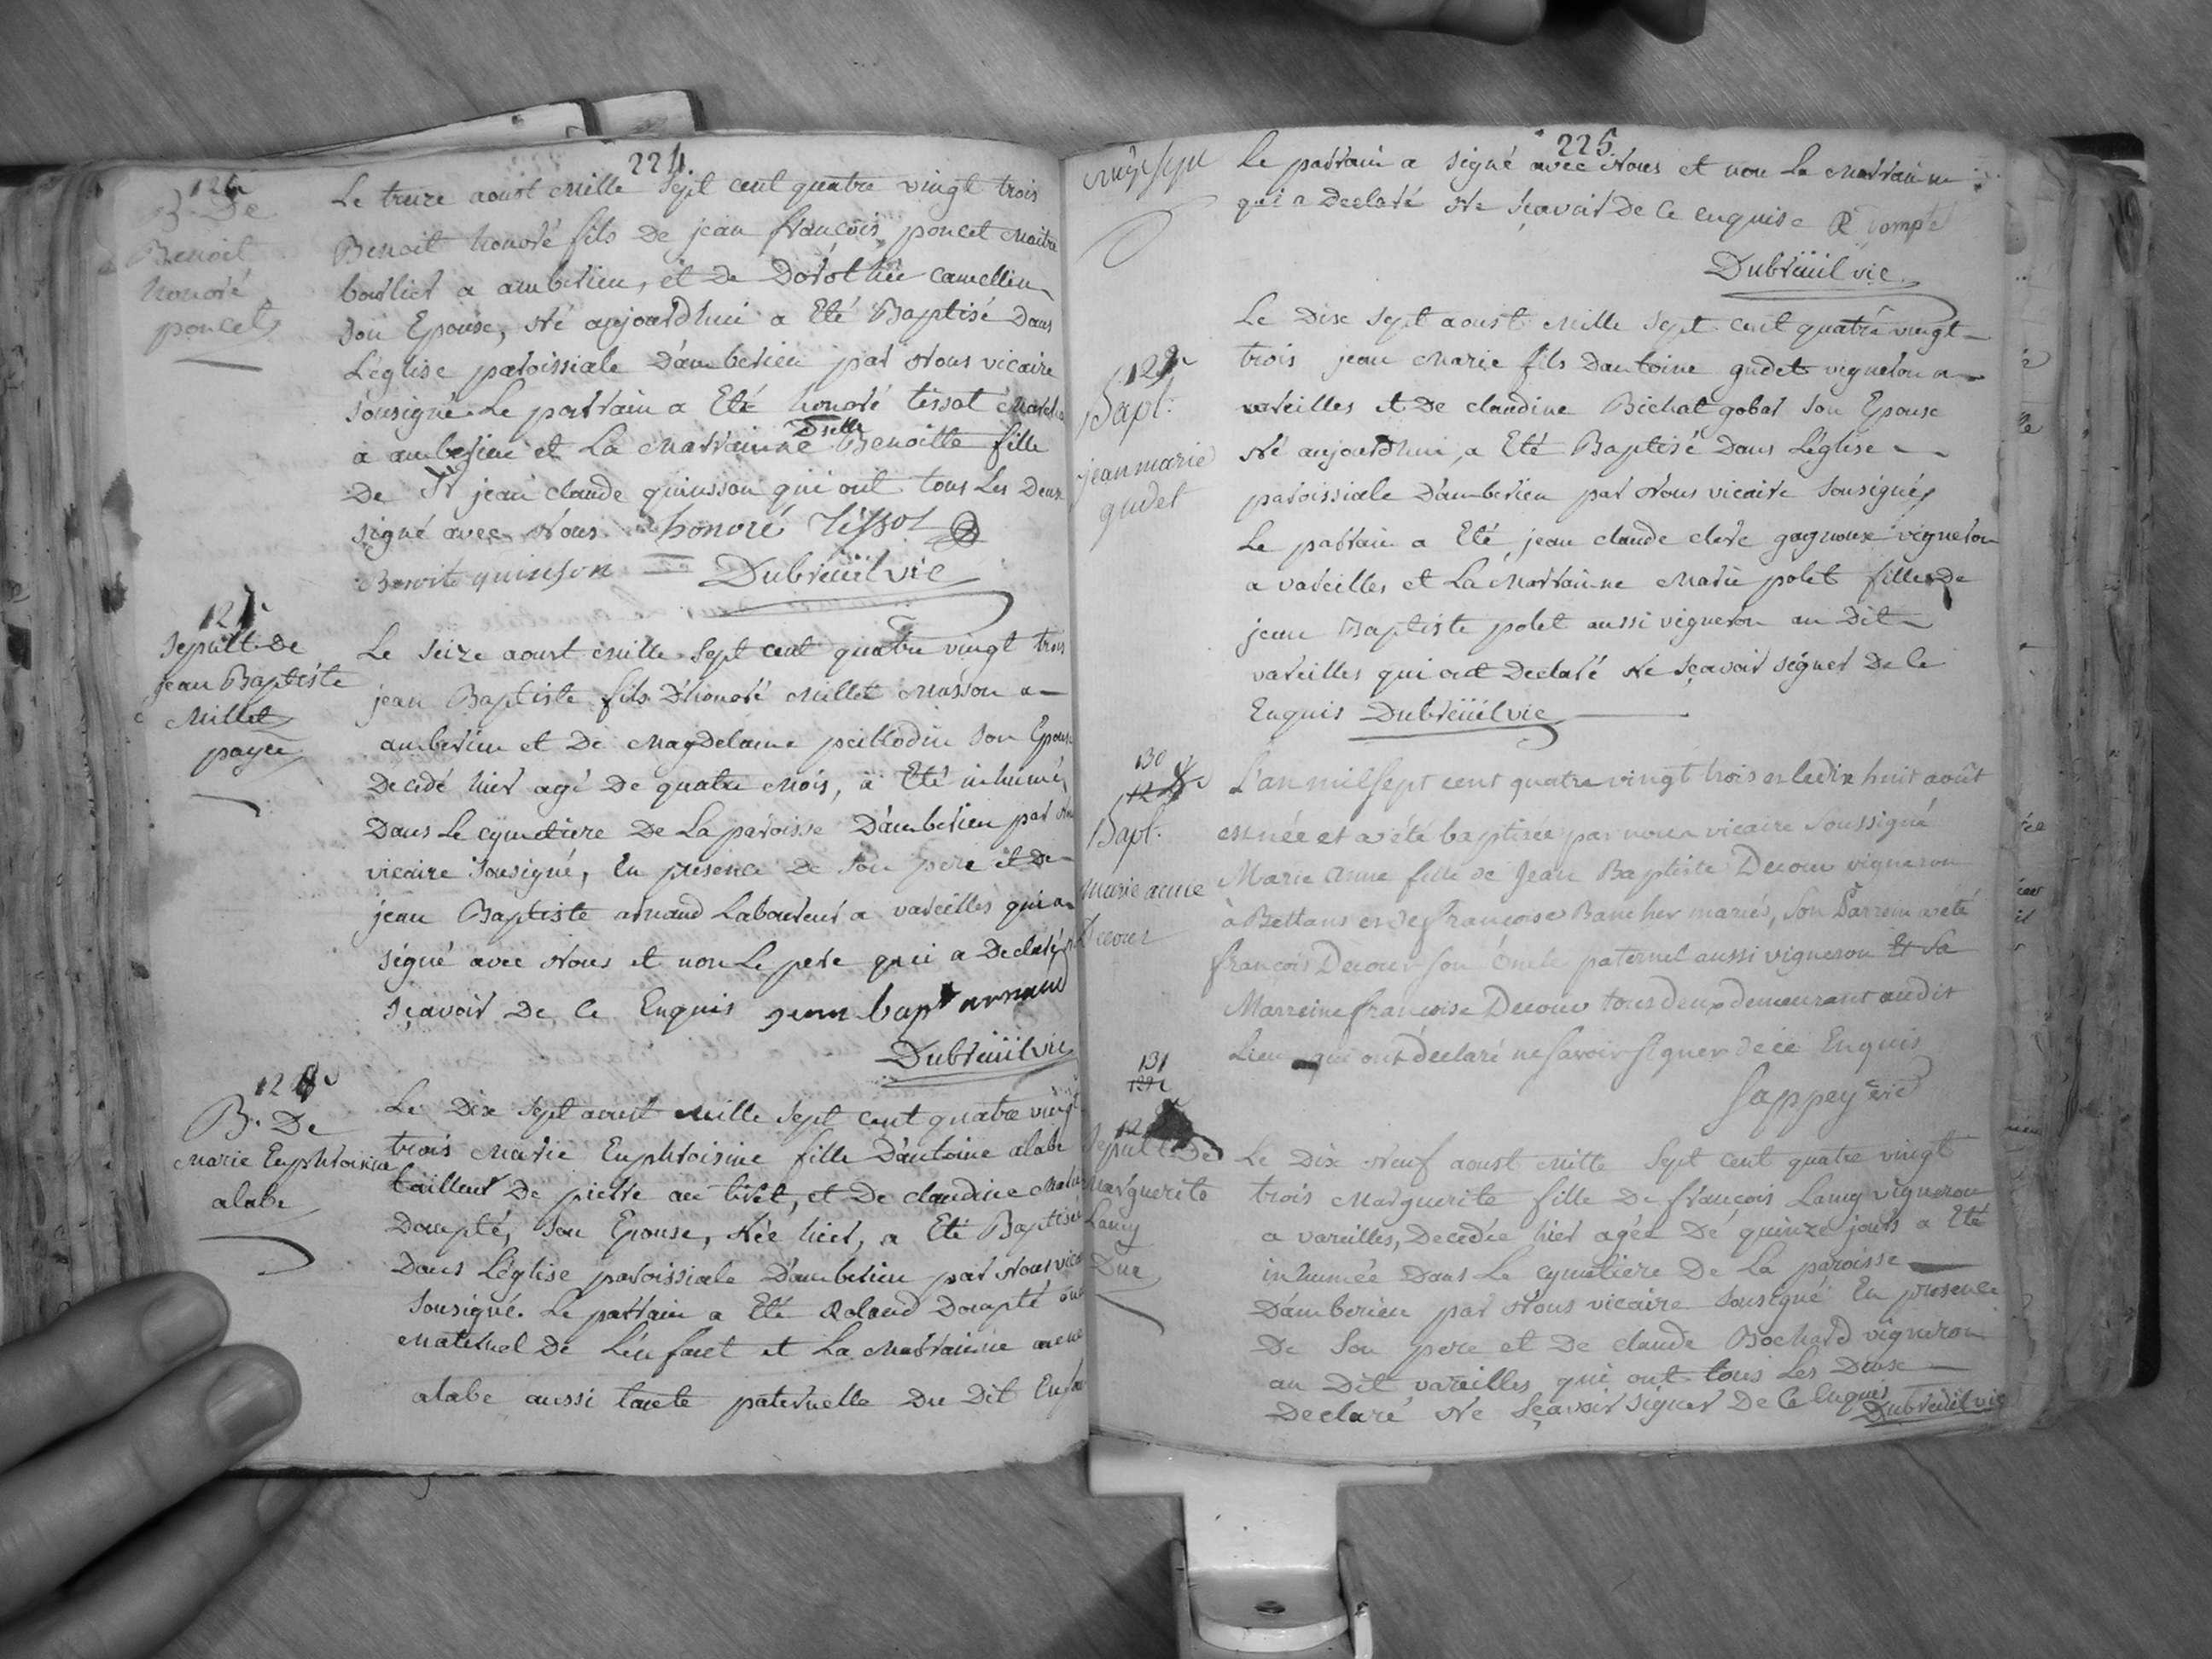 224.
126
B. De
Benoit
honoré
poncet
Le treize aoust mille sept cent quatre vingt trois
Benoit honoré fils De jean françois poncet Maitre
bourlier a amberieu, et De Dorothée camellin
son Epouse, Né aujourdhui a Eté Baptisé Dans
L'église paroissiale D'amberieu par Nous vicaire
sousigné Le parrain a Eté honoré tissot March
a amberieu et La Marrainne Dselle Benoitte fille
De Sr jean claude quinsson qui ont tous Les Deux
signé avec Nous honoré Tissot
Benoite quinson Dubreüil vic
127
Sepult De
jean Baptiste
Millet
payée
Le seize aoust mille sept cent quatre vingt trois
jean Baptiste fils D'honoré Millet Masson a
amberieu et De Magdelaine peillodin son Epouse
Decedé hier agé De quatre Mois, a Eté inhumé
Dans Le cymetiere De La paroisse D'amberieu par
vicaire sousigné, En presence De son pere et De
jean Baptiste arnaud Laboureur a vareilles qui a
signé avec Nous et non Le pere qui a Declaré
sçavoir De ce Enquis jean bapt arnaud
Dubreüil vic
128
B. De
Marie Euphroisine
alabe
Le Dix sept aoust mille sept cent quatre vingt
trois Marie Euphroisine fille D'antoine alabe
tailleur De pierre au tiret, et De claudine
Dompté, son Epouse, Née hier, a Eté Baptisée
Dans L'église paroissiale D'amberieu par Nous vic
sousigné. Le parrain a Eté Roland Dompté
Maternel De L'enfant et La Marrainne anne
alabe aussi tante paternelle Du Dit Enfant
225.
vingt sept
Le parrain a signé avec Nous et non La Marrainne
qui a Declaré Ne sçavoir De ce enquise R Dompté
Dubreüil vic
129
Bapt.
jean marie
gudet
Le Dix sept aoust mille sept cent quatre vingt
trois jean Marie fils Dantoine gudet vigneron a
vareilles et De claudine Bichat gobar son Epouse
Né aujourdhui, a Eté Baptisé Dans L'église
paroissiale D'amberieu par Nous vicaire sousigné
Le parrain a Eté jean claude clerc gagneux vigneron
a vareilles et La Marrainne Marie polet fille De
jean Baptiste polet aussi vigneron au Dit
vareilles qui ont Declaré Ne sçavoir signer De ce
Enquis Dubreüil vic
130
Bapt.
Marie anne
Decour
L'an mil sept cent quatre vingt trois et le dix huit août
est née et a été baptisée par nous vicaire soussigné
Marie Anne fille de Jean Baptiste Decour vigneron
à Bettans et de françoise Bancher mariés, son Parrein a été
françois Decour son Oncle paternel aussi vigneron et Sa
Marreine françoise Decour tous deux demeurant au dit
Lieu qui ont déclaré ne savoir signer de ce Enquis
Sappey vic
131
Sepult De
Marguerite
Lamy
Due
Le Dix Neuf aoust mille Sept cent quatre vingt
trois Marguerite fille De françois Lamy vigneron
a vareilles, Decedée hier agée De quinze jours a Eté
inhumée Dans Le cymetiere De La paroisse
D'amberieu par Nous vicaire sousigné En presence
De son pere et De claude Bochard vigneron
au Dit vareilles qui ont tous Les Deux
Declaré Ne sçavoir signer De ce Enquis
Dubreüil vic